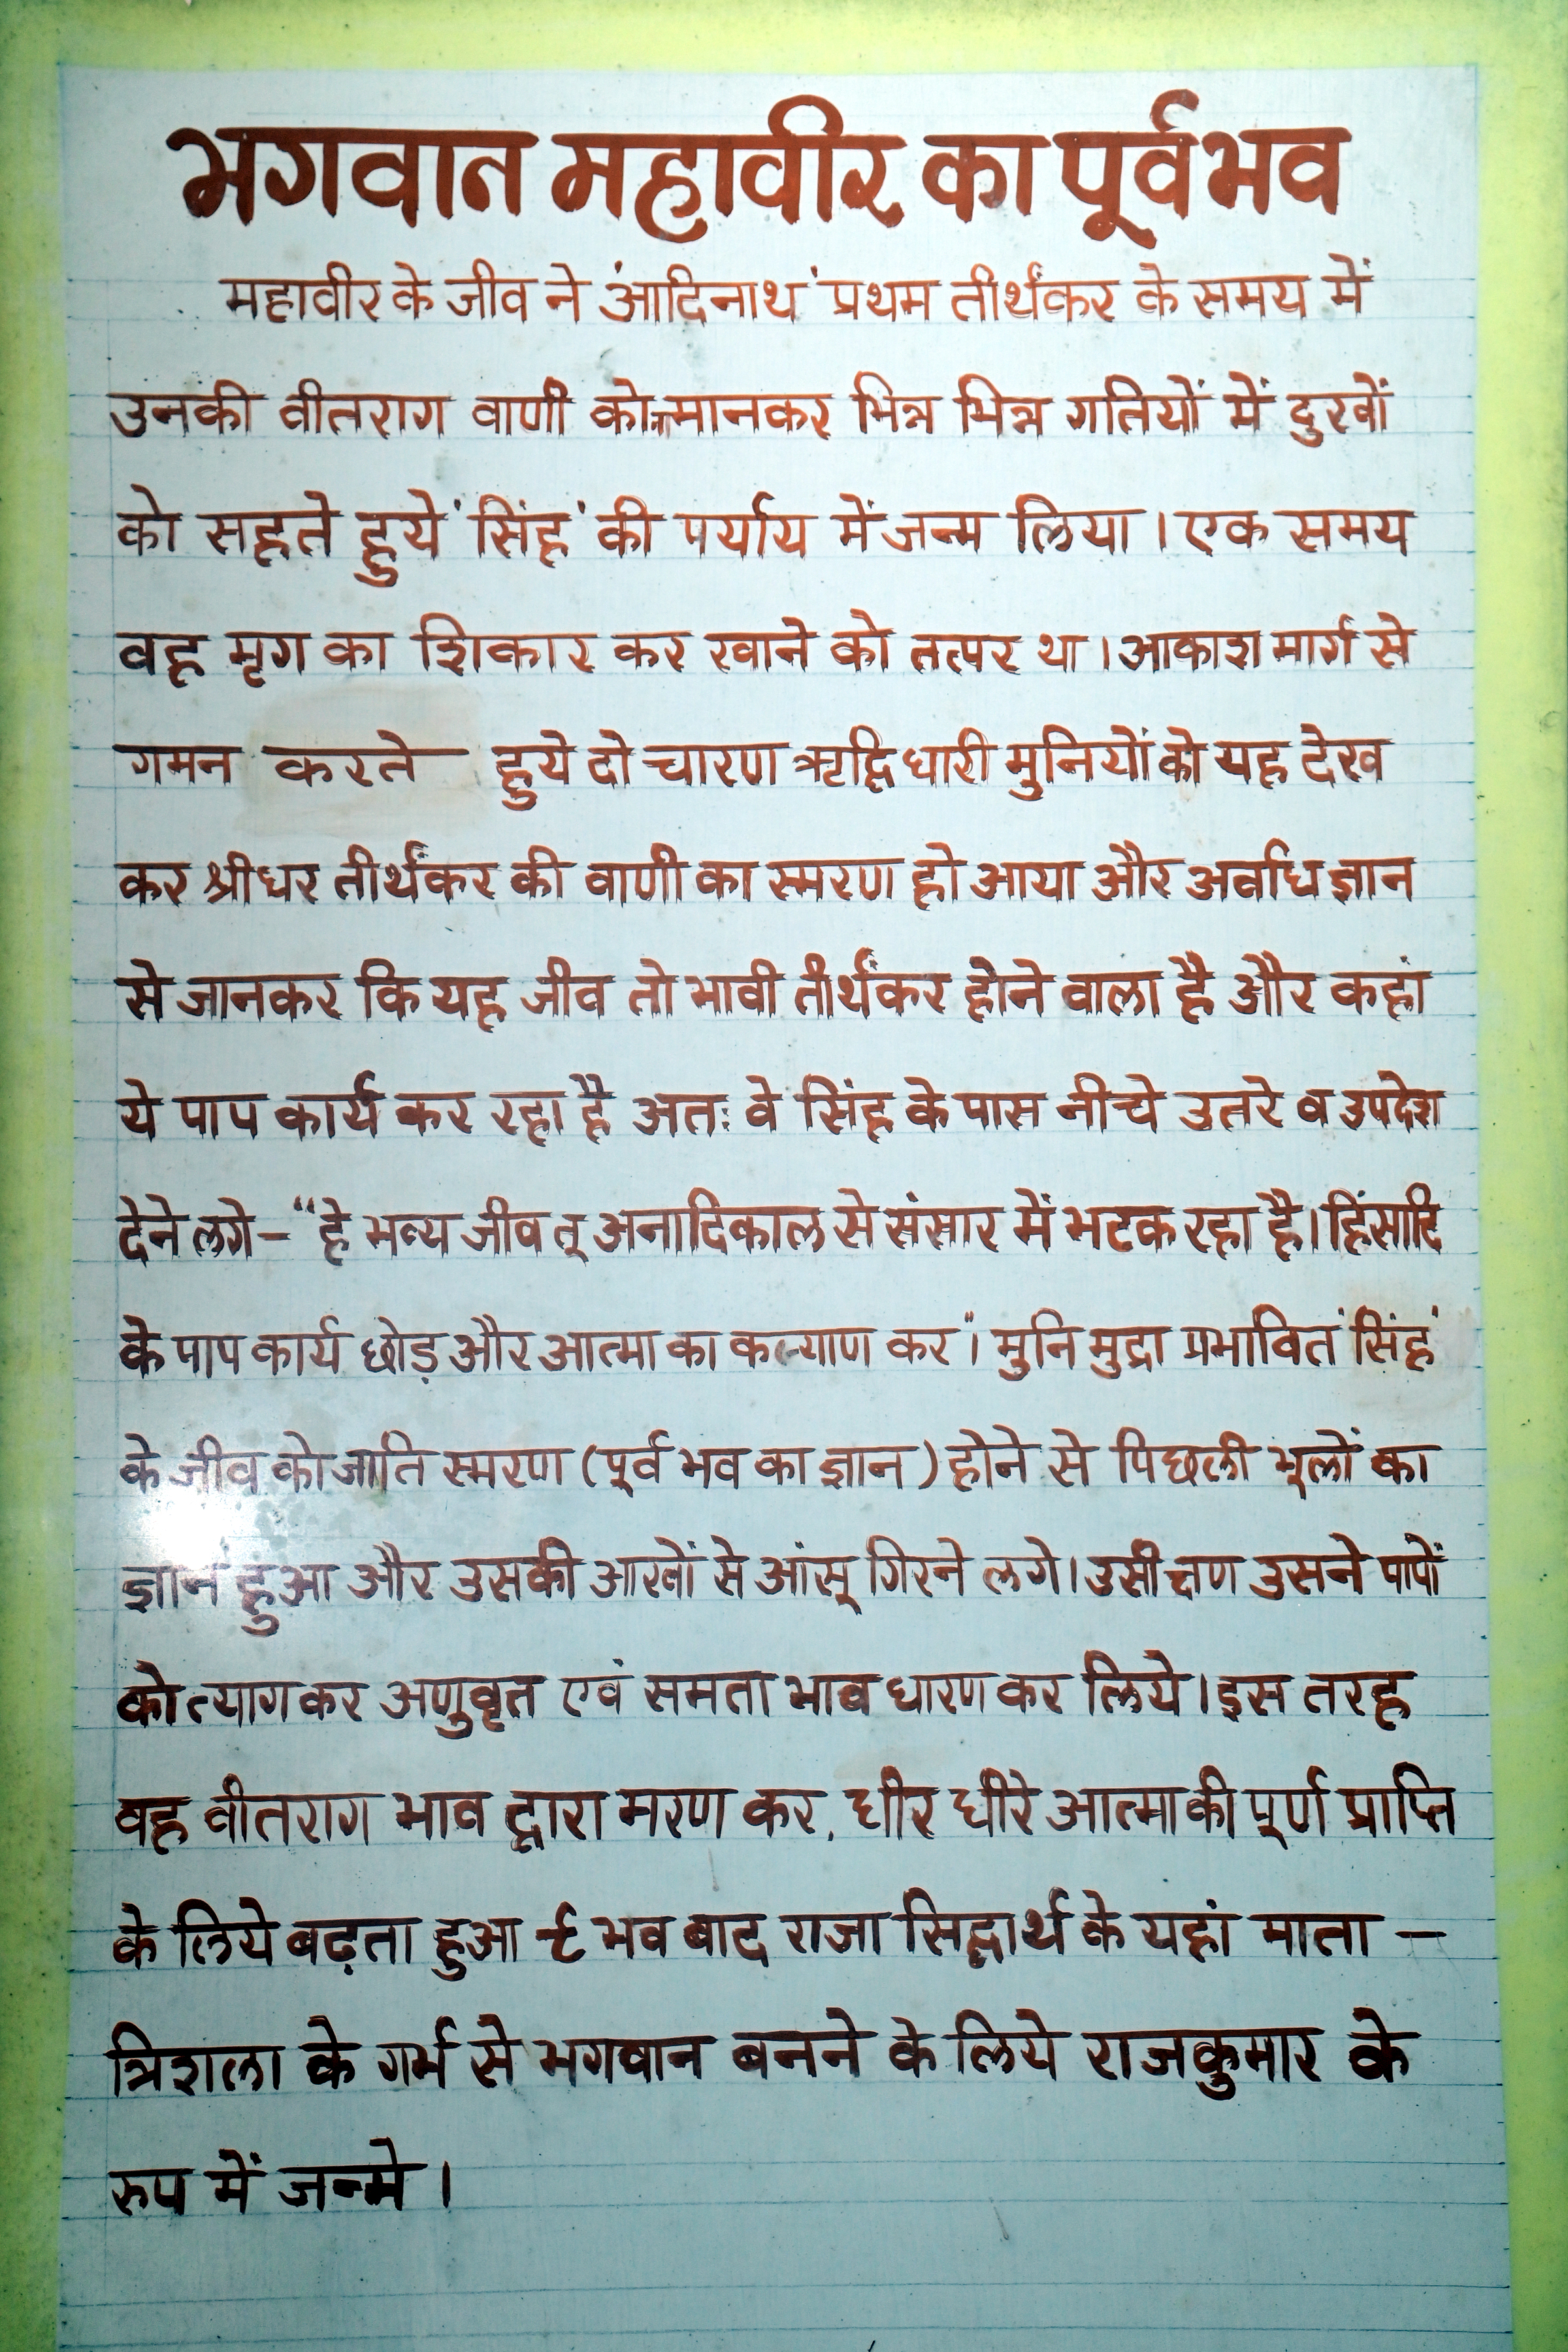 भगवान महावीर का पूर्वभव
महावीर के जीव ने 'आदिनाथ' प्रथम तीर्थंकर के समय में
उनकी वीतराग वाणी को न मानकर भिन्न भिन्न गतियों में दुखों
को सहते हुये 'सिंह' की पर्याय में जन्म लिया । एक समय
वह मृग का शिकार कर खाने को तत्पर था । आकाश मार्ग से
गमन करते हुये दो चारण ऋद्धि धारी मुनियों को यह देख
कर श्रीधर तीर्थंकर की वाणी का स्मरण हो आया और अवधि ज्ञान
से जानकर कि यह जीव तो भावी तीर्थंकर होने वाला है और कहां
ये पाप कार्य कर रहा है अतः वे सिंह के पास नीचे उतरे व उपदेश
देने लगे - "हे भव्य जीव तू अनादिकाल से संसार में भटक रहा है। हिंसादि
के पाप कार्य छोड़ और आत्मा का कल्याण कर"। मुनि मुद्रा प्रभावित 'सिंह'
के जीव को जाति स्मरण (पूर्व भव का ज्ञान) होने से पिछली भूलों का
ज्ञान हुआ और उसकी आखों से आंसू गिरने लगे। उसी क्षण उसने पापों
को त्याग कर अणुवृत एवं समता भाव धारण कर लिये। इस तरह
वह वीतराग भाव द्वारा मरण कर, धीर धीरे आत्मा की पूर्ण प्राप्ति
के लिये बढ़ता हुआ ९ भव बाद राजा सिद्धार्थ के यहां माता -
त्रिशला के गर्भ से भगवान बनने के लिये राजकुमार के
रुप में जन्मे ।